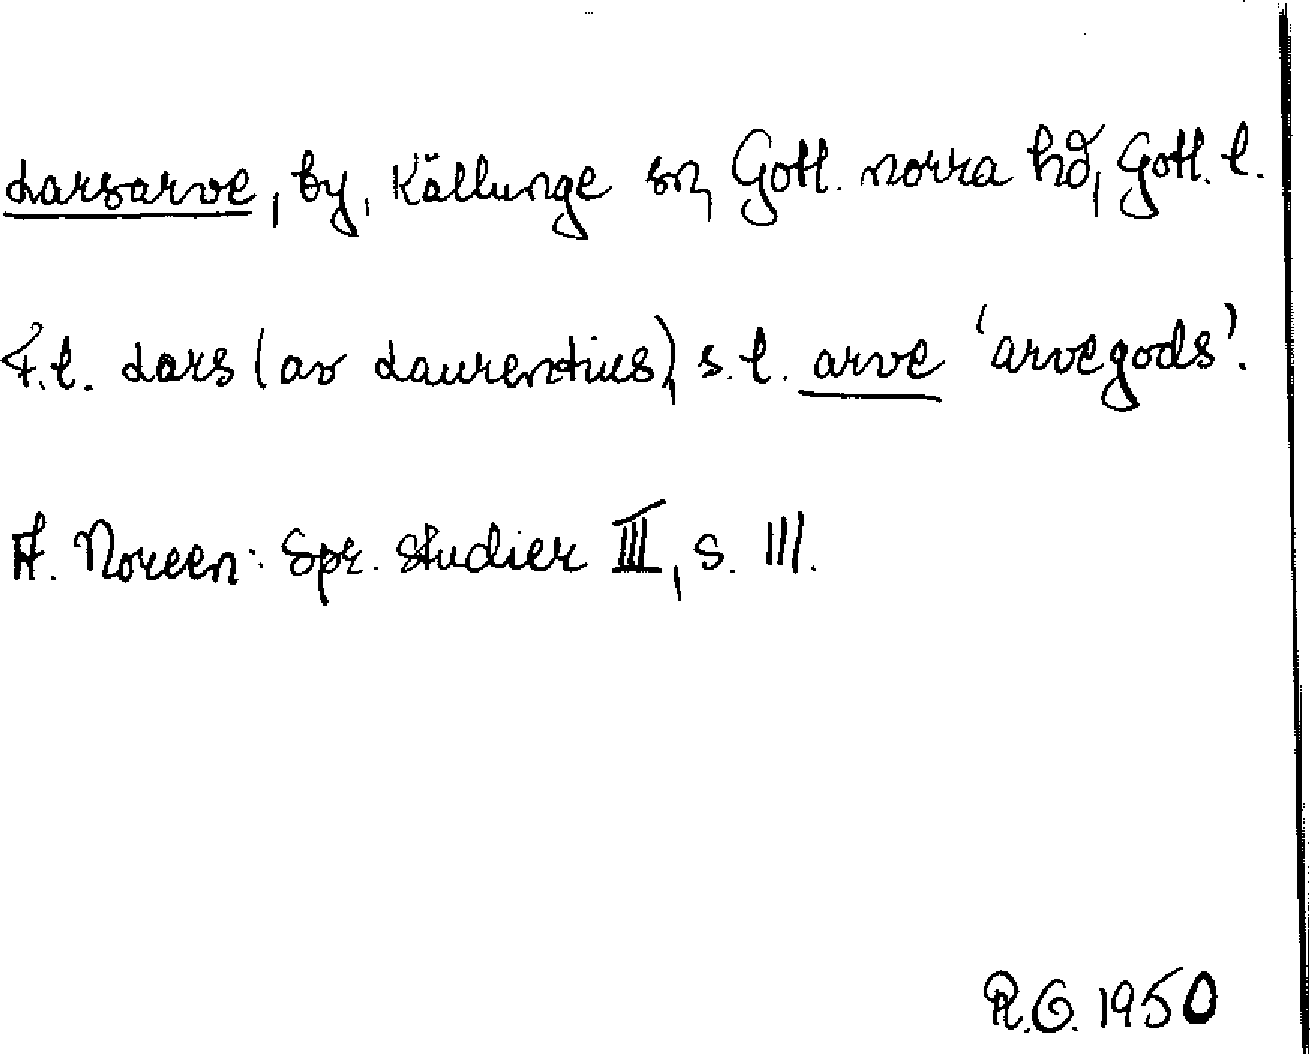 Larsarve, by, Källunge sn, Gotl. norra hd, Gotl. l.
F.l. Lars (av Laurentius), s.l. arve 'arvegods'.
A. Noreen: Spr. studier III, s. 111.
R.G. 1950